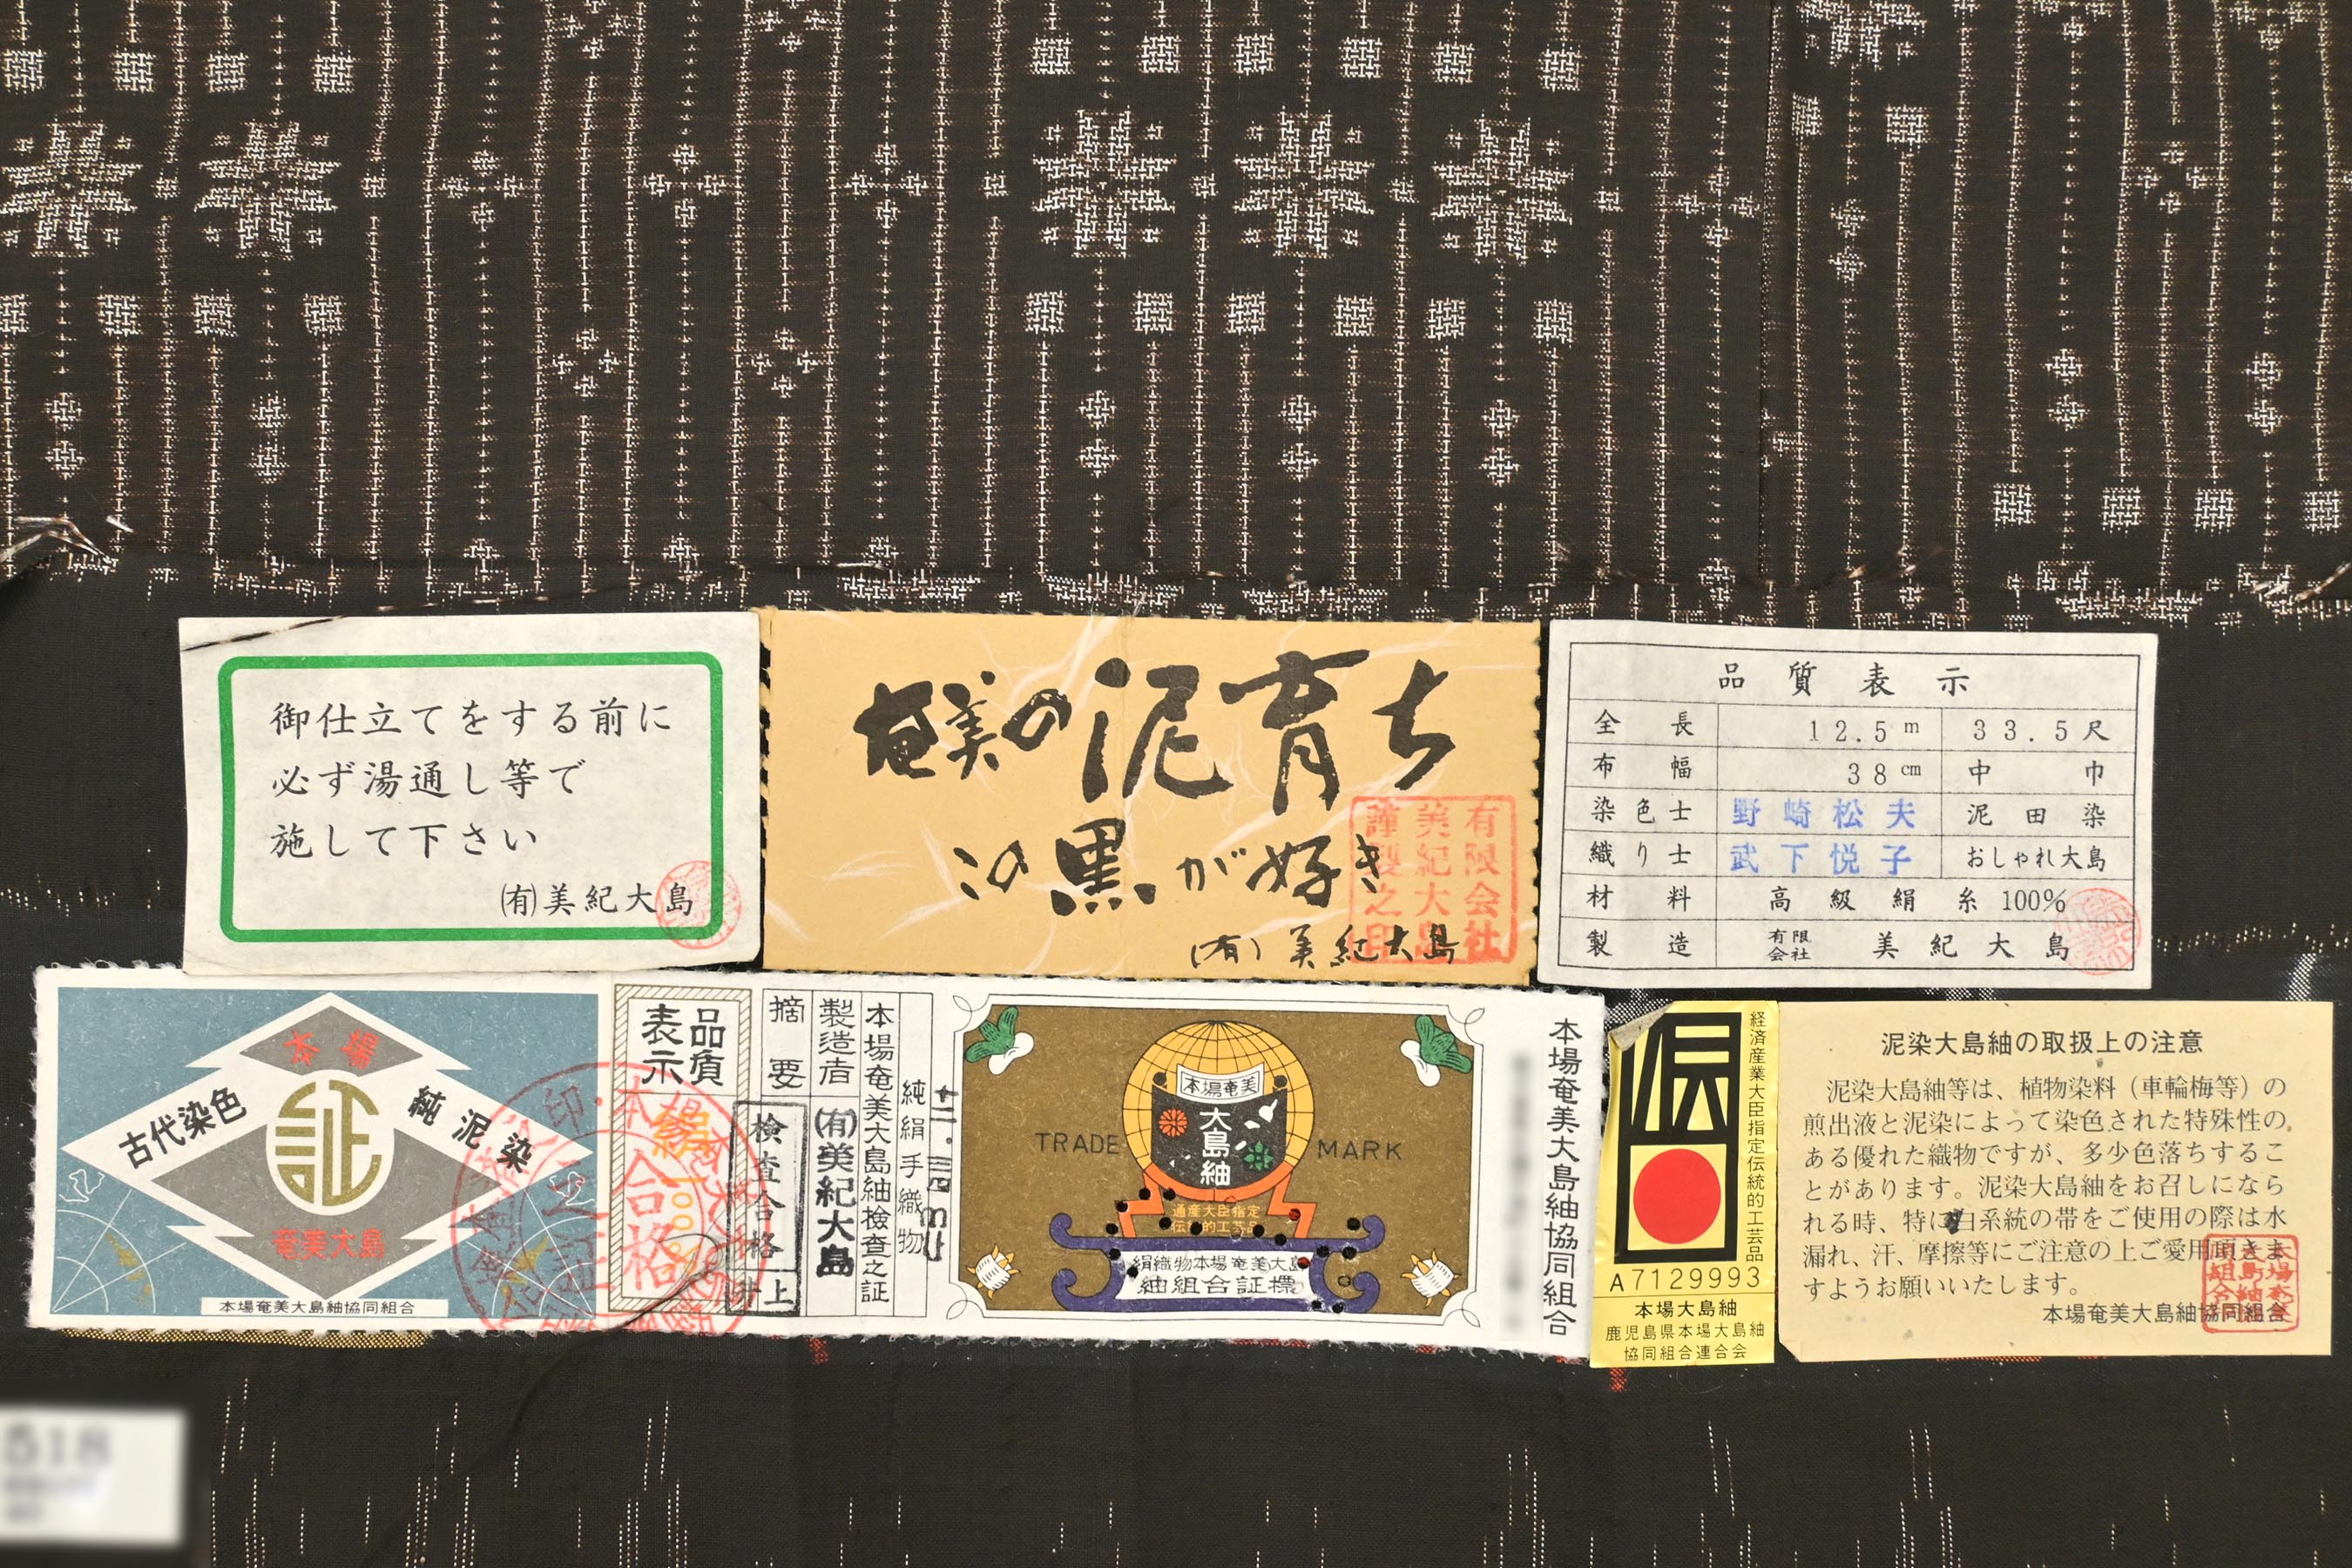 御仕立てをする前に
必ず湯通し等で
施して下さい
(有)美紀大島
奄美の泥育ち
この黒が好き
(有)美紀大島
有限会社
美紀大島
謹製之印
品質表示
全長 12.5m 33.5尺
布幅 38cm 中巾
染色士 野崎松夫 泥田染
織り士 武下悦子 おしゃれ大島
材料 高級絹糸 100%
製造 有限会社 美紀大島
本場
古代染色
純泥染
証
奄美大島
本場奄美大島紬協同組合
合格
品質表示
摘要
検査合格
製造者
(有)美紀大島
本場奄美大島紬検査之証
純絹手織物
TRADE MARK
本場奄美
大島紬
通産大臣指定
伝統的工芸品
絹織物本場奄美大島
紬組合証標
本場奄美大島紬協同組合
経済産業大臣指定伝統的工芸品
伝
A7129993
本場大島紬
鹿児島県本場大島紬
協同組合連合会
泥染大島紬の取扱上の注意
泥染大島紬等は、植物染料(車輪梅等)の
煎出液と泥染によって染色された特殊性の
ある優れた織物ですが、多少色落ちするこ
とがあります。泥染大島紬をお召しになら
れる時、特に白系統の帯をご使用の際は水
漏れ、汗、摩擦等にご注意の上ご愛用頂きま
すようお願いいたします。
本場奄美大島紬協同組合
518